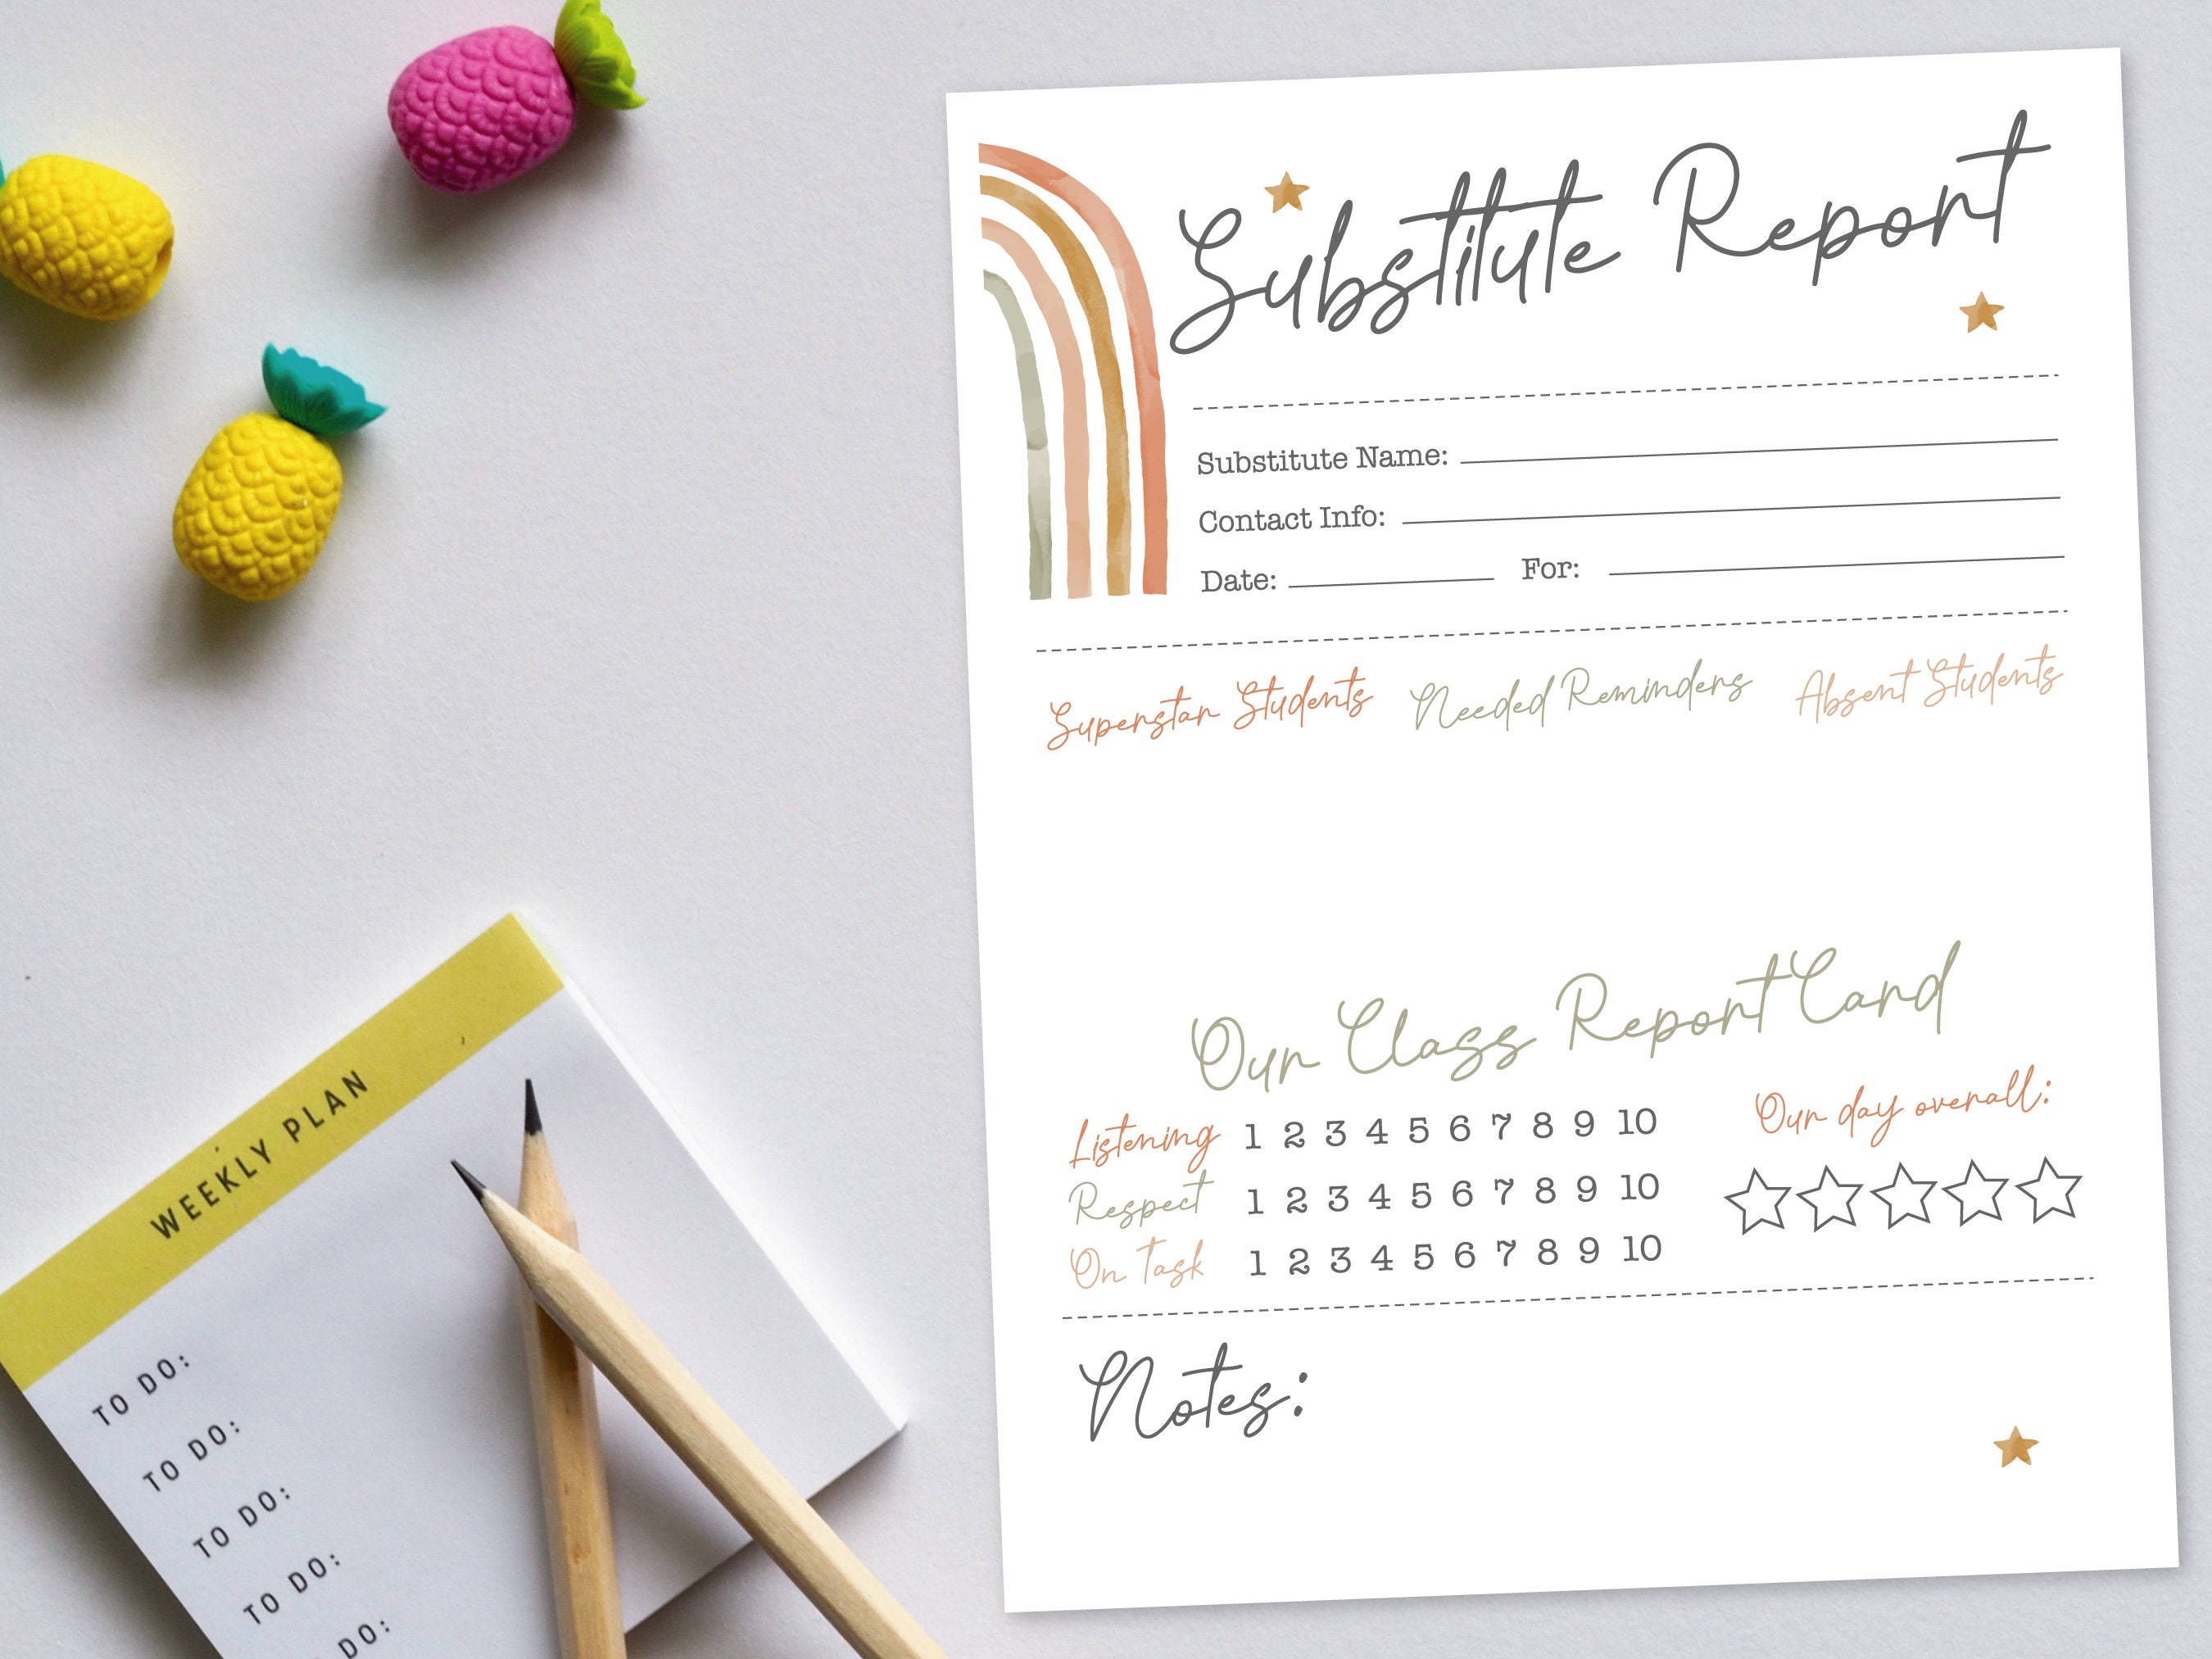 Substitute Report
Substitute Name:
Contact Info:
Date: For:
Superstar Students Needed Reminders Absent Students
Our Class Report Card
Listening 1 2 3 4 5 6 7 8 9 10
Respect 1 2 3 4 5 6 7 8 9 10
On Task 1 2 3 4 5 6 7 8 9 10
Our day overall:
Notes:
WEEKLY PLAN
TO DO:
TO DO:
TO DO:
TO DO:
DO: